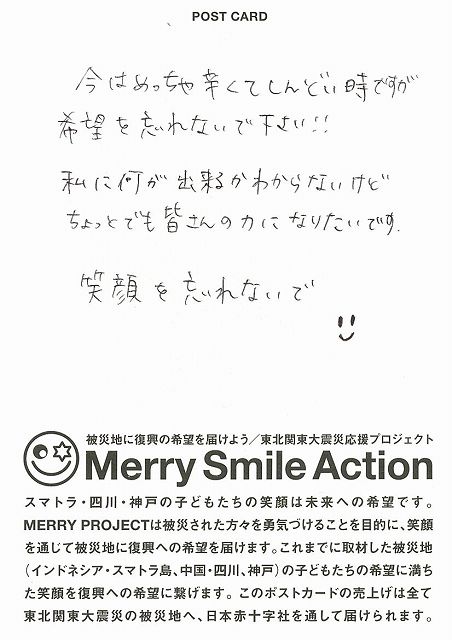 POST CARD
今はめっちゃ辛くてしんどい時ですが
希望を忘れないで下さい!!
私に何が出来るかわからないけど
ちょっとでも皆さんの力になりたいです.
笑顔を忘れないで
被災地に復興の希望を届けよう／東北関東大震災応援プロジェクト
Merry Smile Action
スマトラ・四川・神戸の子どもたちの笑顔は未来への希望です。
MERRY PROJECTは被災された方々を勇気づけることを目的に、笑顔
を通じて被災地に復興への希望を届けます。これまでに取材した被災地
（インドネシア・スマトラ島、中国・四川、神戸）の子どもたちの希望に満ち
た笑顔を復興への希望に繋げます。このポストカードの売上げは全て
東北関東大震災の被災地へ、日本赤十字社を通して届けられます。